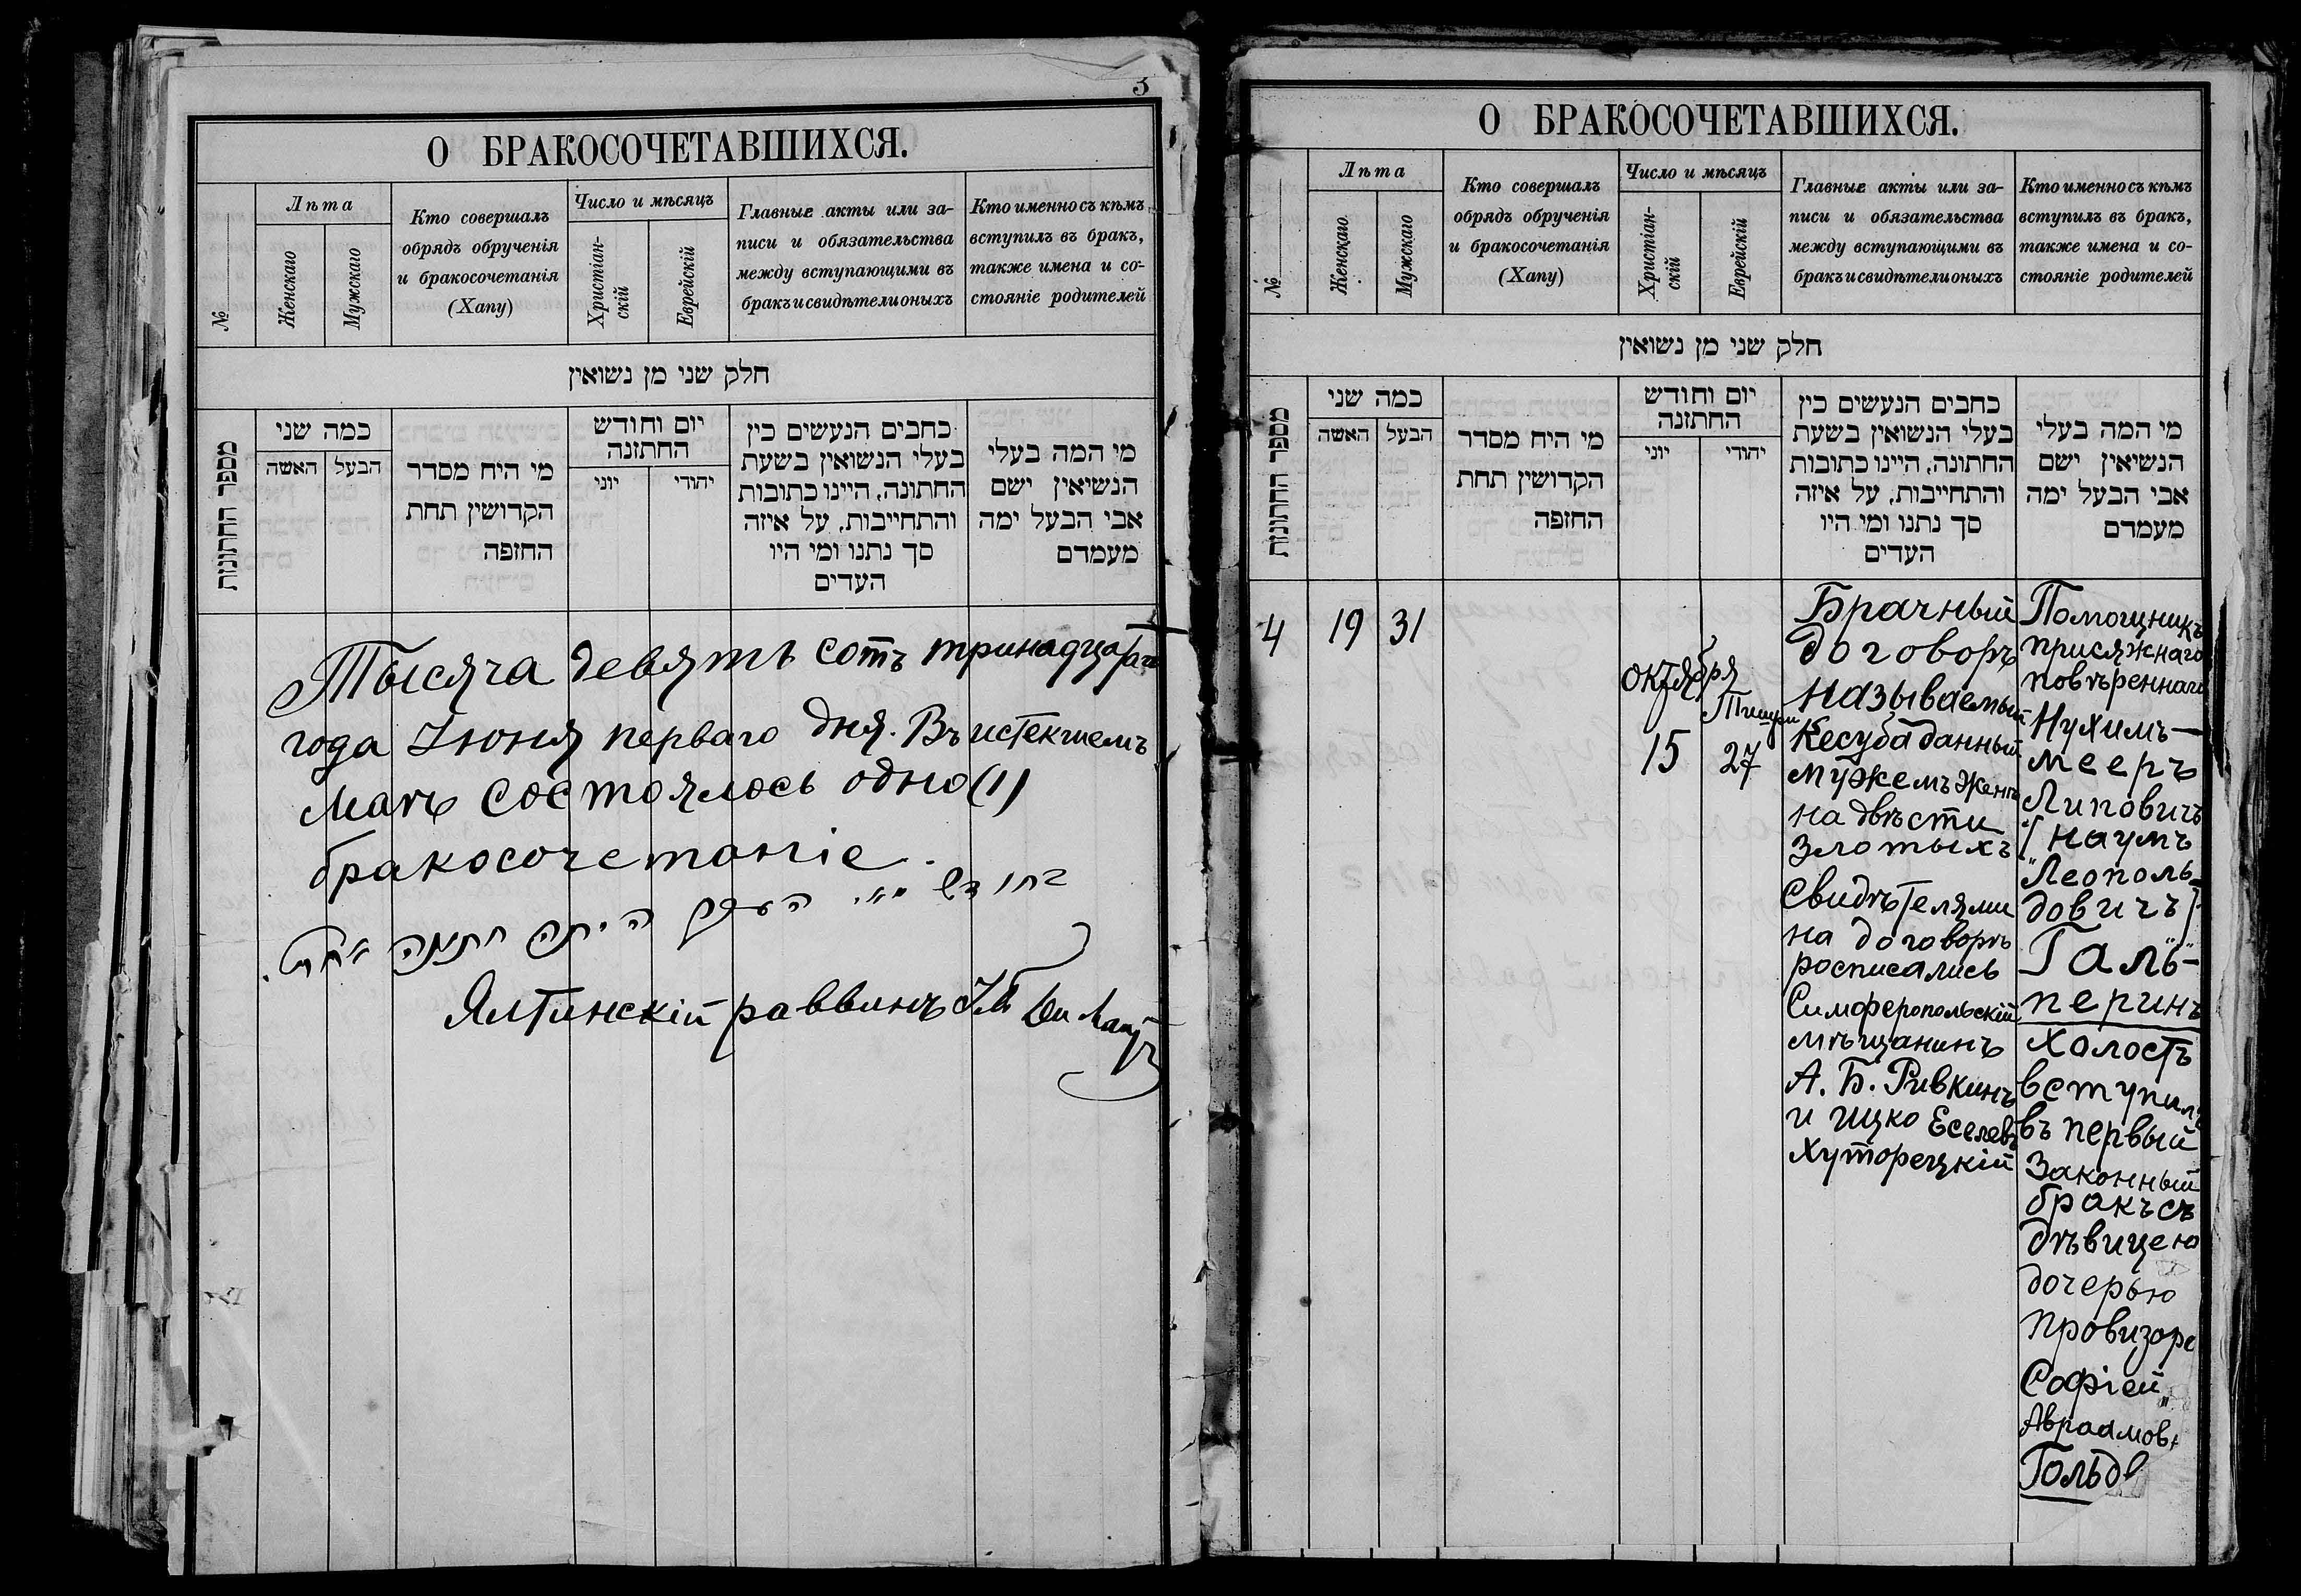 3
О БРАКОСОЧЕТАВШИХСЯ.
№
Лѣта
Женскаго
Мужскаго
Кто совершалъ
обрядъ обрученія
и бракосочетанія
(Хапу)
Число и мѣсяцъ
Христіан-
скій
Еврейскій
Главные акты или за-
писи и обязательства
между вступающими въ
бракъ и свидѣтели оныхъ
Кто именно съ кѣмъ
вступилъ въ бракъ,
также имена и со-
стояніе родителей
חלק שני מן נשואין
מספר החתונות
כמה שני
האשה
הבעל
מי היח מסדר
הקדושין תחת
החזפה
יום וחודש
החתזנה
יוני
יהודי
כחבים הנעשים כין
בעלי הנשואין בשעת
החתונה, היינו כתובות
והתחייבות, על איזה
סך נתנו ומי היו
העדים
מי המה בעלי
הנשיאין ישם
אבי הבעל ימה
מעמדם
Тысяча девять сотъ тринадцат
года Іюня перваго дня. Въ истекшемъ
Маѣ состоялось одно (1)
бракосочетаніе.
Ялтинскій раввинъ
О БРАКОСОЧЕТАВШИХСЯ.
№
Лѣта
Женскаго
Мужскаго
Кто совершалъ
обрядъ обрученія
и бракосочетанія
(Хапу)
Число и мѣсяцъ
Христіан-
скій
Еврейскій
Главные акты или за-
писи и обязательства
между вступающими въ
бракъ и свидѣтели оныхъ
Кто именно съ кѣмъ
вступилъ въ бракъ,
также имена и со-
стояніе родителей
חלק שני מן נשואין
מספר החתונות
כמה שני
האשה
הבעל
מי היח מסדר
הקדושין תחת
החזפה
יום וחודש
החתזנה
יוני
יהודי
כחבים הנעשים כין
בעלי הנשואין בשעת
החתונה, היינו כתובות
והתחייבות, על איזה
סך נתנו ומי היו
העדים
מי המה בעלי
הנשיאין ישם
אבי הבעל ימה
מעמדם
4
19
31
октября
15
Тишри
27
Брачный
договоръ
называемый
Кесуба данный
мужемъ женѣ
на двѣсти
злотыхъ
Свидѣтелями
на договорѣ
росписались
Симферопольскій
мѣщанинъ
А. Б. Ривкинъ
и Ицко Еселевъ
Хуторецкій
Помощникъ
присяжнаго
повѣреннаго
Нухимъ-
мееръ
Липовичъ
[Наумъ
"Леополь-
довичъ]
"Галь-
перинъ
холостъ
вступилъ
въ первый
законный
бракъ съ
дѣвицею
дочерью
провизора
Софіей
Авраамов
Гольд